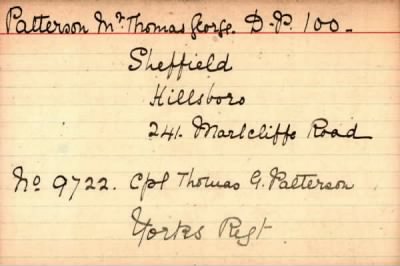 Patterson Mr Thomas George. D.P. 100-
Sheffield
Hillsboro
241. Marlcliffe Road
No 9722. Cpl Thomas G. Patterson
Yorks Regt